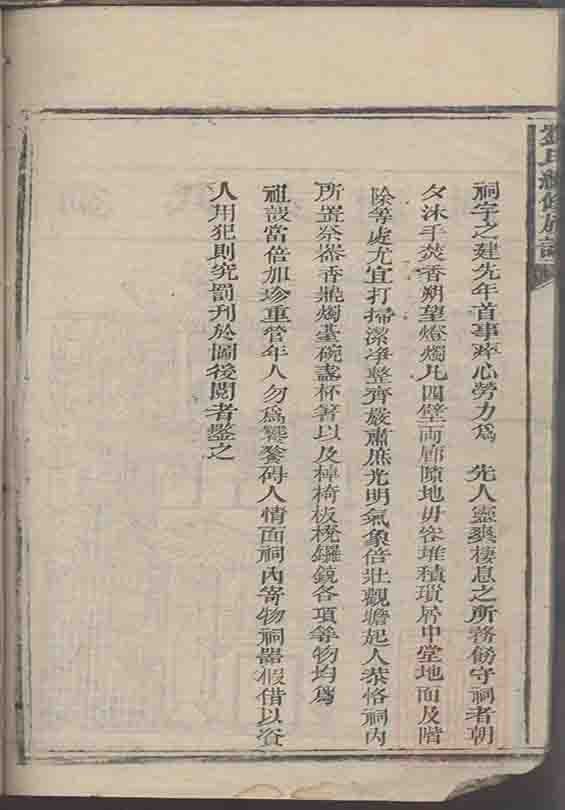 劉氏續修族譜
祠宇之建先年首事瘁心勞力為　先人靈爽棲息之所務飭守祠者朝
夕沐手焚香朔望燈燭凡四壁両廊隙地毋容堆積瑣屑中堂地面及階
除等處尤宜打掃潔净整齊嚴肅庶光明氣象倍壯觀瞻起人恭恪祠内
所置祭器香爐燭臺碗盞杯箸以及棹椅板櫈鑼鏡各項等物均為
祖設當倍加珍重管年人勿為饕餮碍人情面祠內寄物祠器假借以資
人用犯則究罰刊於圖後閱者鑒之